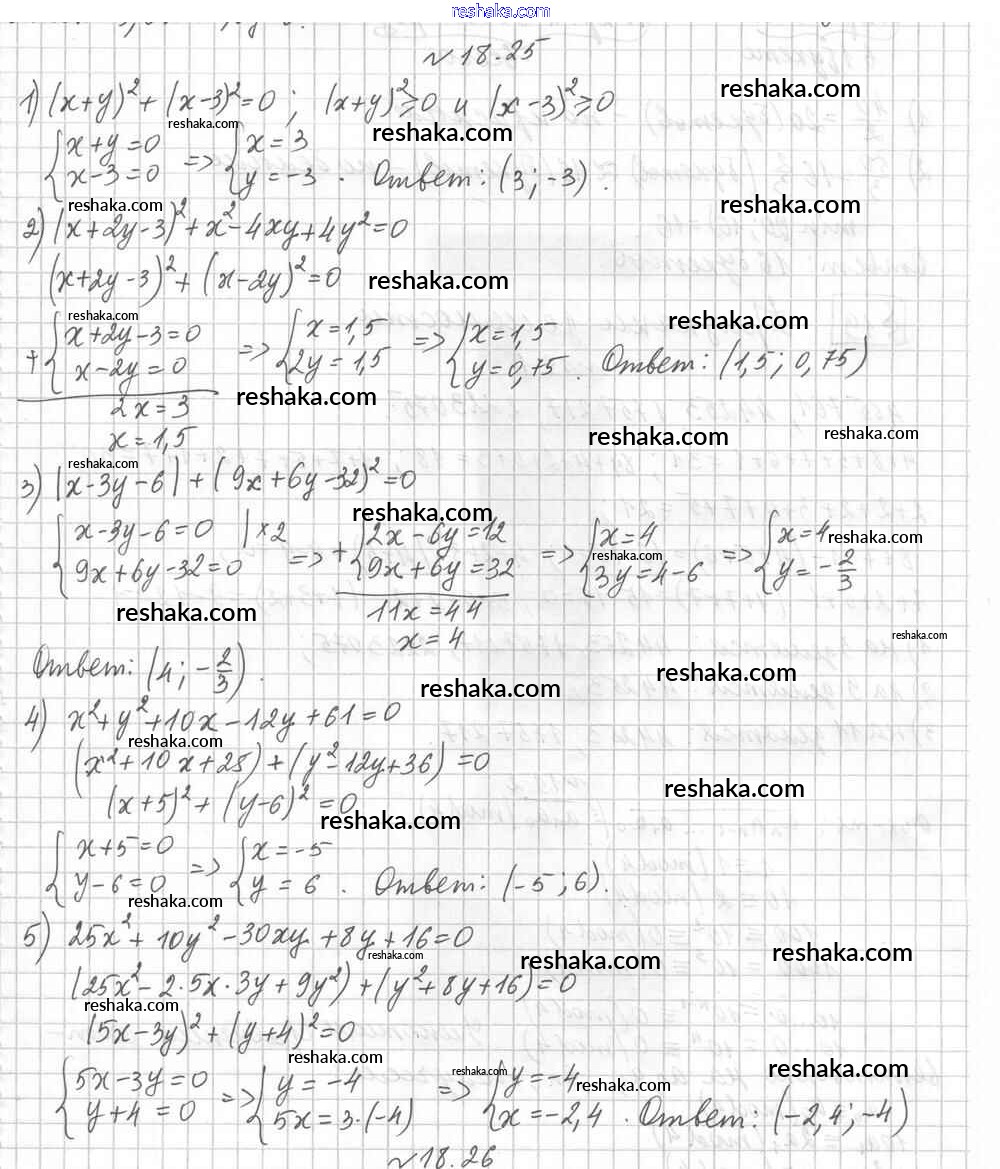 reshaka.com
№ 18.25
1) (x+y)²+(x-3)²=0; (x+y)²⩾0 и (x-3)²⩾0
reshaka.com
reshaka.com
reshaka.com
{x+y=0 x-3=0 => {x=3 y=-3. Ответ: (3; -3).
reshaka.com
reshaka.com
2) (x+2y-3)²+x²-4xy+4y²=0
(x+2y-3)²+(x-2y)²=0
reshaka.com
reshaka.com
reshaka.com
+{x+2y-3=0 x-2y=0 => {x=1,5 2y=1,5 => {x=1,5 y=0,75. Ответ: (1,5; 0,75)
reshaka.com
2x=3
x=1,5
reshaka.com
reshaka.com
reshaka.com
3) |x-3y-6|+(9x+6y-32)²=0
reshaka.com
{x-3y-6=0 |×2 9x+6y-32=0 => +{2x-6y=12 9x+6y=32 => {x=4 3y=4-6 => {x=4 y=-2/3
reshaka.com
reshaka.com
reshaka.com
11x=44
x=4
reshaka.com
Ответ: (4; -2/3).
reshaka.com
reshaka.com
4) x²+y²+10x-12y+61=0
reshaka.com
(x²+10x+28)+(y²-12y+36)=0
reshaka.com
(x+5)²+(y-6)²=0
reshaka.com
{x+5=0 y-6=0 => {x=-5 y=6. Ответ: (-5; 6).
reshaka.com
5) 25x²+10y²-30xy+8y+16=0
reshaka.com
reshaka.com
reshaka.com
(25x²-2·5x·3y+9y²)+(y²+8y+16)=0
reshaka.com
(5x-3y)²+(y+4)²=0
reshaka.com
reshaka.com
reshaka.com
reshaka.com
{5x-3y=0 y+4=0 => {y=-4 5x=3·(-4) => {y=-4 x=-2,4. Ответ: (-2,4; -4)
№ 18.26